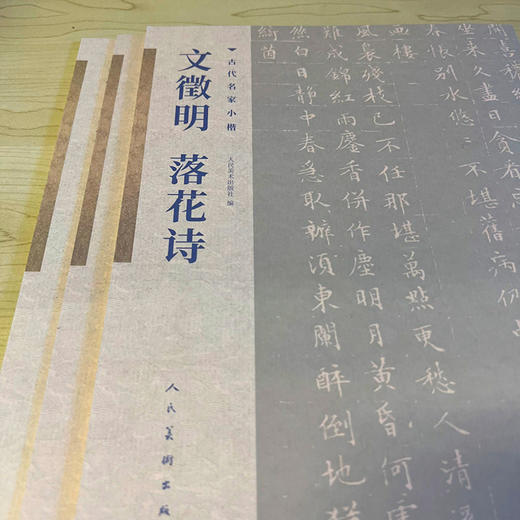 古代名家小楷
文徵明 落花诗
人民美术出版社 编
人民美術出版
坐來久盡日貪看
春恨別水悠〻不堪舊病仍
畫樓
風裊殘枝已不任那堪萬點更愁人清
難成錦紅雨塵香併作塵明月黃昏何
白日靜中春急取辦須東闌醉倒地猶
綺茵